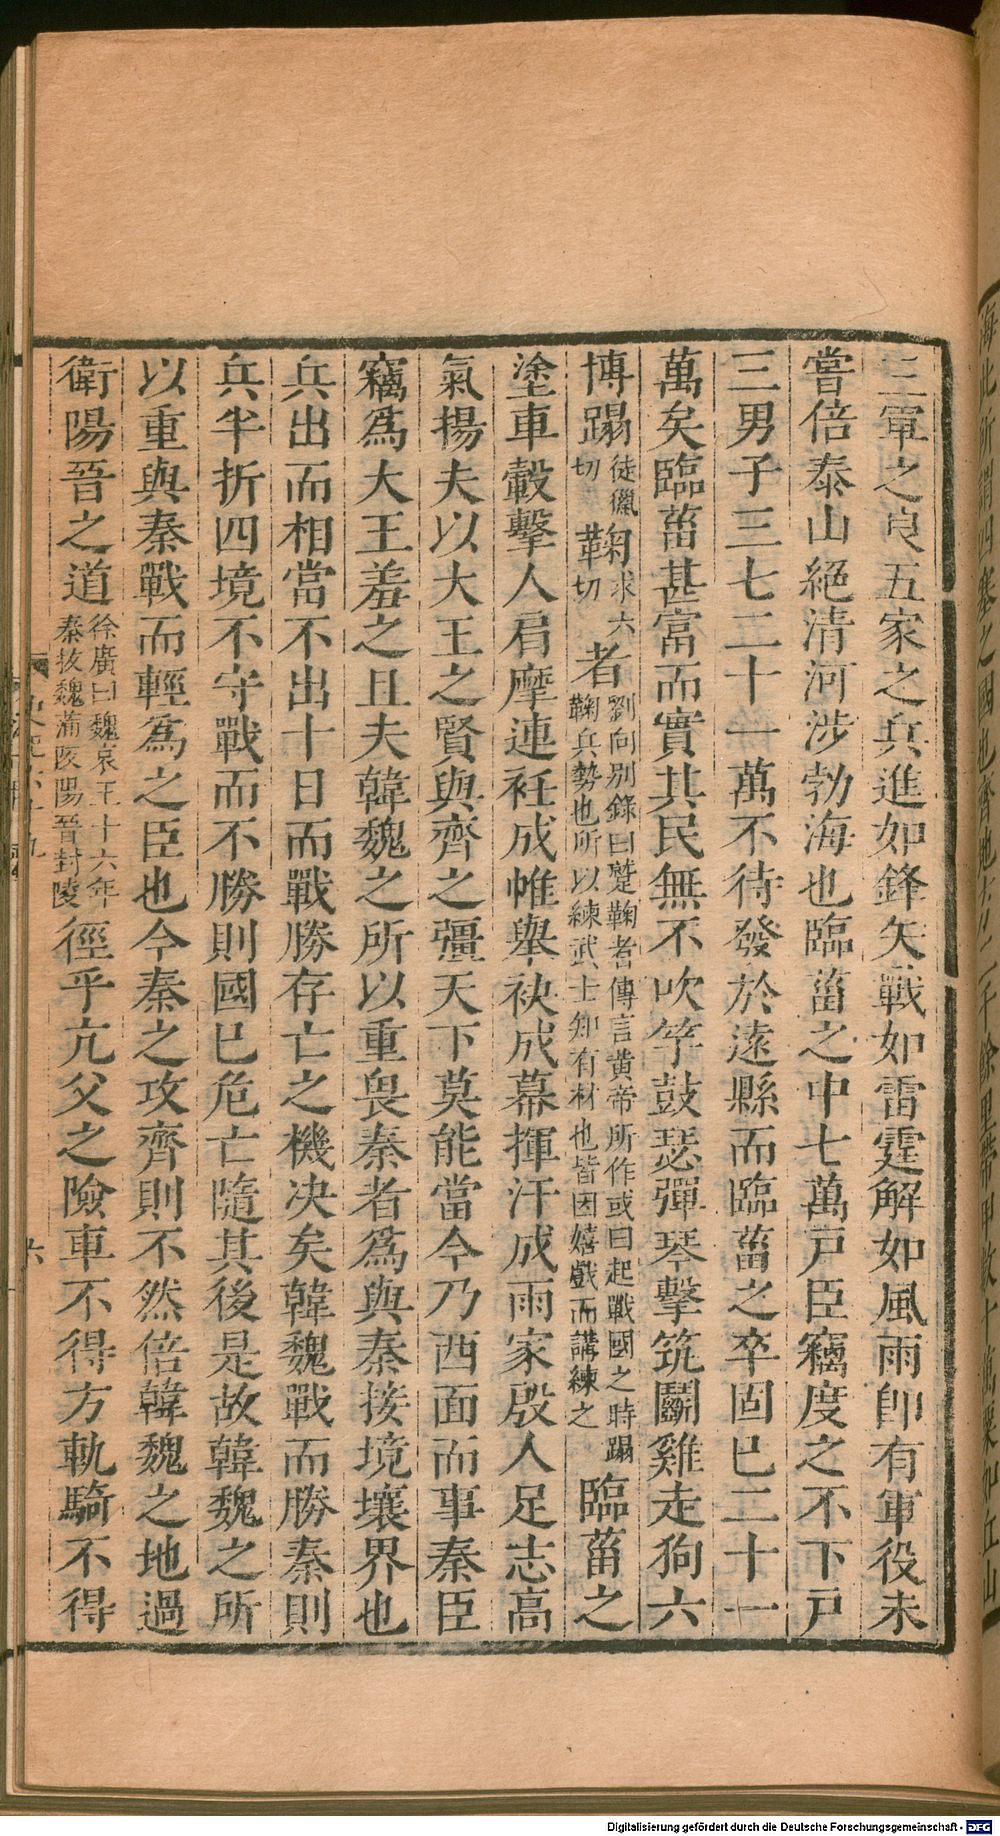 三軍之良五家之兵進如鋒矢戰如雷霆解如風雨即有軍役未
嘗倍泰山絕清河涉勃海也臨菑之中七萬戸臣竊度之不下戸
三男子三七二十一萬不待發於遠縣而臨菑之卒固已二十一
萬矣臨菑甚富而實其民無不吹竽鼓瑟彈琴擊筑鬬雞走狗六
博蹋徒獵切鞠求六切者劉向別錄曰蹵鞠者傳言黃帝所作或曰起戰國之時蹋鞠兵勢也所以練武士知有材也皆因嬉戲而講練之臨菑之
塗車轂擊人肩摩連衽成帷舉袂成幕揮汗成雨家殷人足志高
氣揚夫以大王之賢與齊之彊天下莫能當今乃西面而事秦臣
竊爲大王羞之且夫韓魏之所以重畏秦者爲與秦接境壤界也
兵出而相當不出十日而戰勝存亡之機决矣韓魏戰而勝秦則
兵半折四境不守戰而不勝則國已危亡隨其後是故韓魏之所
以重與秦戰而輕爲之臣也今秦之攻齊則不然倍韓魏之地過
衛陽晉之道徐廣曰魏哀王十六年秦拔魏蒲阪陽晉封陵徑乎亢父之險車不得方軌騎不得
六
Digitalisierung gefördert durch die Deutsche Forschungsgemeinschaft - DFG